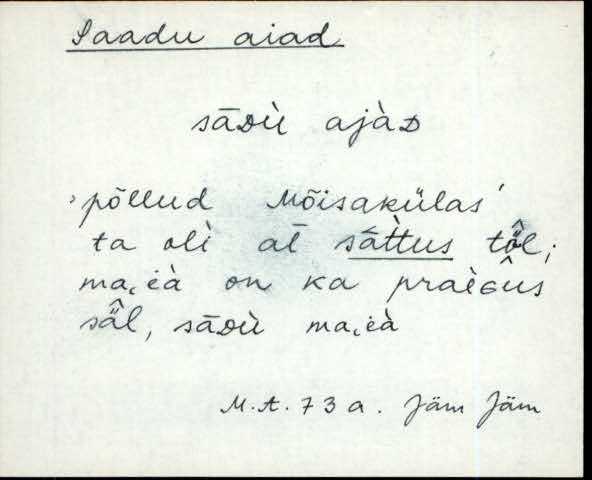 Saadu aiad
sāᴅù ajàᴅ
'põllud Mõisakülas'
ta olì at̄ sát̀tus tö̂l;
ma˛ėà on ka praèɢûs
sä̂l, sāᴅù ma˛ėà
M.A. 73 a. Jäm Jäm